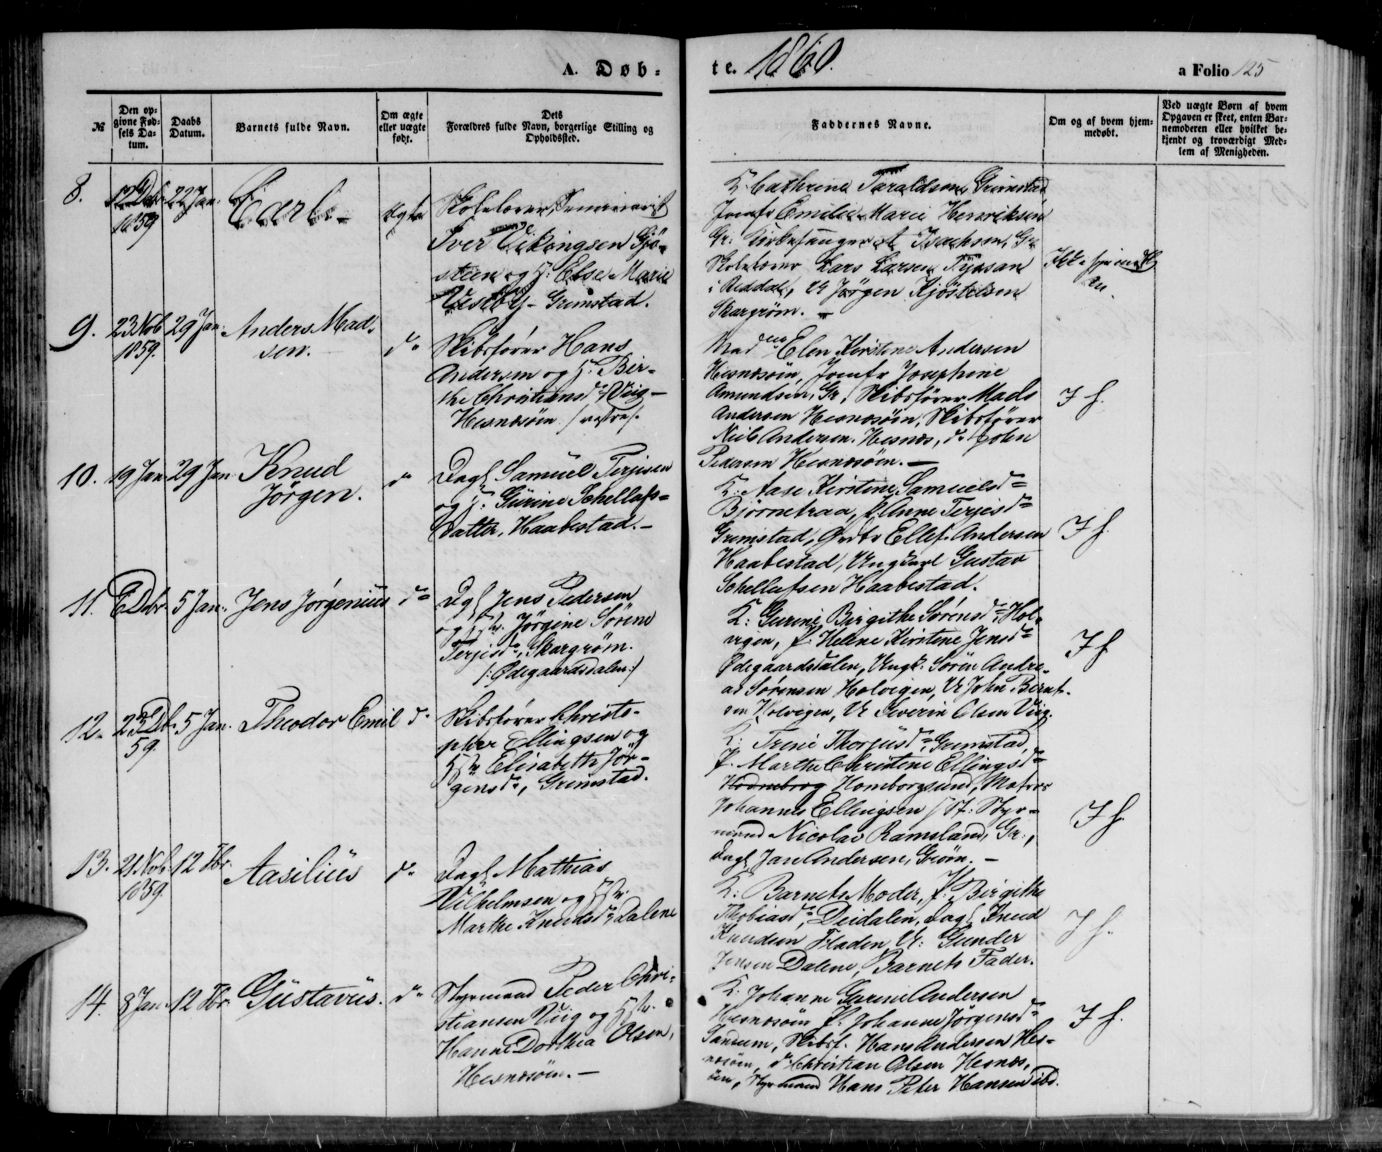 A. Døb-
te. 1860.
a Folio 125
№
Den op-
givne Fød-
sels Da-
tum.
Daabs
Datum.
Barnets fulde Navn.
Om ægte
eller uægte
født.
Forældres fulde Navn, borgerlige Stilling og
Opholdssted.
Faddernes Navne.
Om og af hvem hjem-
medøbt.
Ved uægte Børn af hvem
Opgaven er skeet, enten Bar-
nemoderen eller hvilket be-
kjendt og troværdigt Med-
lem af Menigheden.
8. 12 Dbr 1859 22 Jan. Carl. Ægte
Skolelærer Seminarist
Iver Vikingsen Gjø-
steen og H. Else Marie
Vestby Grimstad.
K. Cathrine Taraldsen, Grimstad
Jomfr Emilie Marie Henriksen
Gr. Kirkesanger Isachsen, Gr
Skolelærer Lars Larsen
i Reddal, Jørgen Kjøstelsen
Skargrøm.
Ikke hjemme
9. 23 Nob 1859. 29 Jan. Anders Mad-
sen. do
Skibsfører Hans
Andersen og H. Bir-
the Christiansdr Viig
Hesnesøen /vestre/.
Mad Elen Kirstine Andersen
Hesnesøen, Jomfr Josephine
Amundsen, Gr, Skibsfører Mads
Andersen Hesnesøen, Skibsfører
Niels Andersen Hesnes, do John
Pedersen Hesnesøen.
I f.
10. 19 Jan 29 Jan Knud
Jørgen. do
Dagl Samuel Terjesen
og H. Gurine Schellufs-
datter, Haabestad.
K. Aase Kirstine Samuelsdr
Bjørnetraa, P. Anne Terjesdr
Grimstad, Ellef Andersen
Haabestad, Ungkarl Gustav
Schellufsen Haabestad.
I f.
11. 6 Dbr 5 Jan. Jens Jørgenius do
Dgl Jens Pedersen
og Hstr. Jørgine Sørine
Terjesdr, Skargrøm.
/:Ødegaardsdalen:/
K: Gurine Birgithe Sørensdr Hol-
vigen, P. Helene Kirstine Jensdr
Ødegaardsdalen, Ungk: Søren Andre-
as Sørensen Holvigen, Ur John Bernt-
sen Holvigen, Ur Severin Olsen Viig.
I f
12. 23 Dbr 59 5 Jan. Theodor Emil do
Skibsfører Christo-
pher Ellingsen og
Hstr Elisabeth Jør-
gensdr, Grimstad.
K: Trine Thorjusdr, Grimstad,
P. Marthe Christine Ellingsdr
Homborgsund, Matros
Johannes Ellingsen /St: Styr-
mand Nicolai Ramsland, Gr.,
Dagl Jan Andersen, Grøm.
I f.
13. 21 Nob 1859. 12 Fbr. Aasilius do
Dagl Mathias
Vilhelmsen og Hstr.
Marthe Knudsdr, Dalene
K: Barnets Moder, P. Birgithe
Thobiasdr, Deidalen, Dagl Knud
Knudsen Fladen, U: Gunder
Jensen Dalene, Barnets Fader.
I f.
14. 8 Jan. 12 Fbr. Gustavus. do
Styrmand Peder Chri-
stiansen Viig og Hstr.
Hanne Dorthea Olsen,
Hesnesøen.
K. Johanne Gurine Andersen
Hesnesøen P. Johanne Jørgensdr
Sandum, Skibsf. Hans Andersen Hes-
nesøen, do Christian Olsen Hesnes-
øen, Styrmand Hans Peter Hansen ibd.
I f.